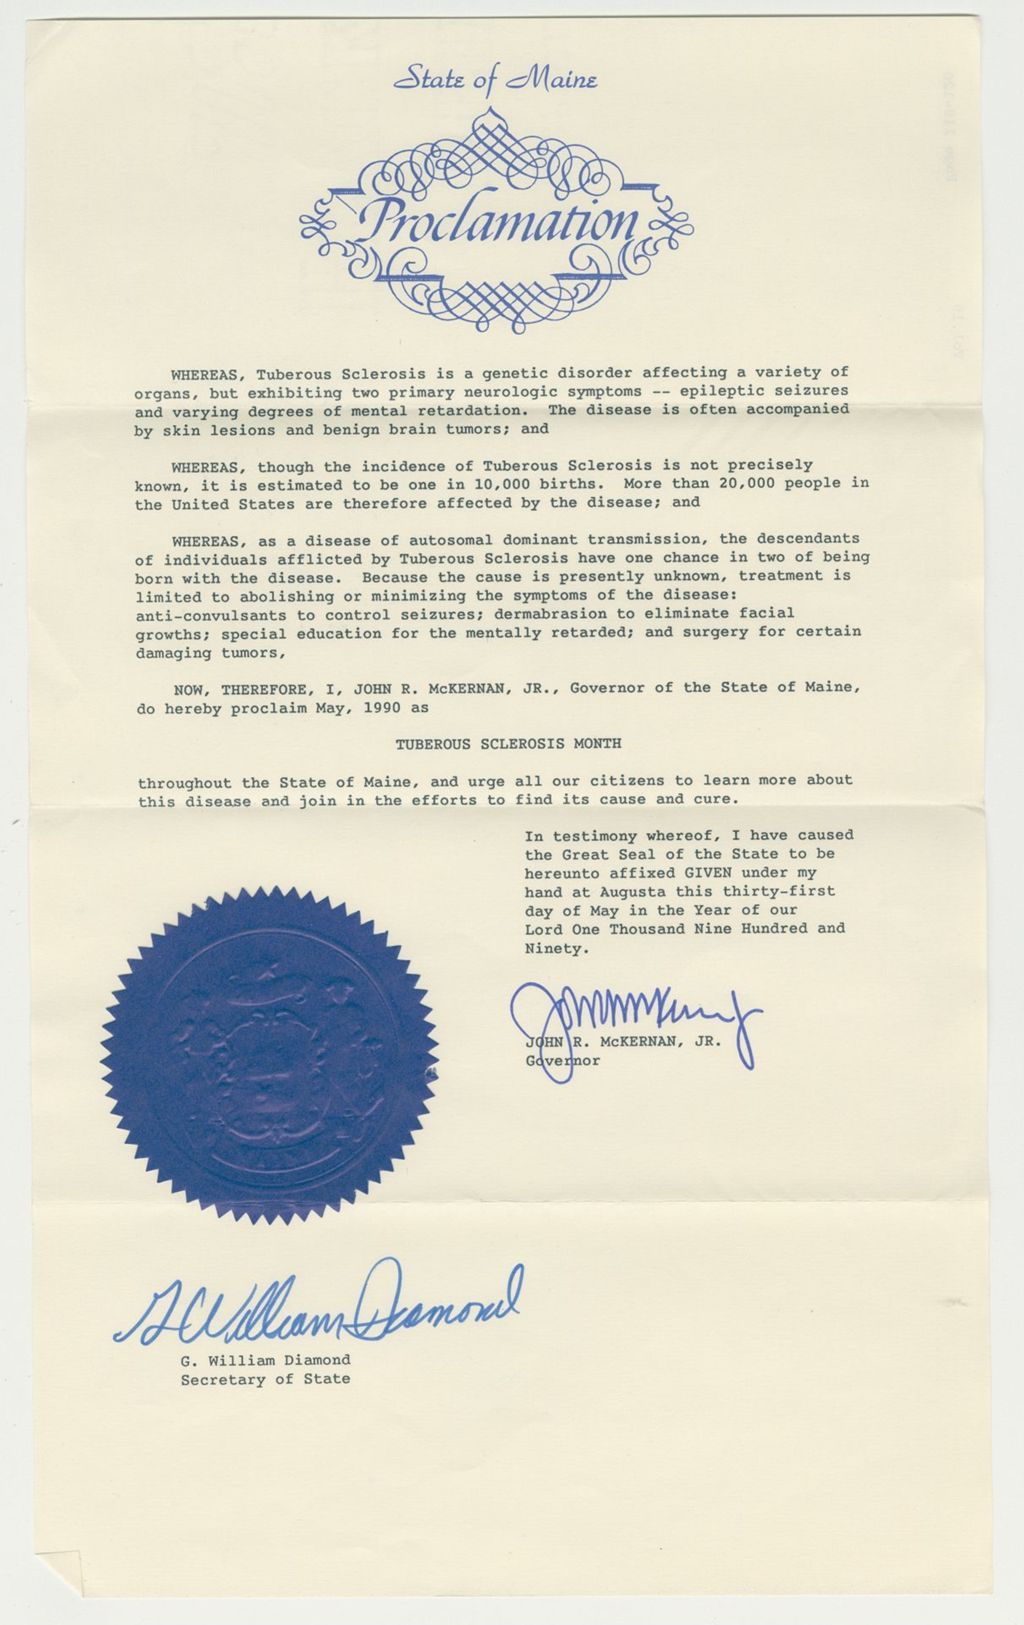 State of Maine
Proclamation
WHEREAS, Tuberous Sclerosis is a genetic disorder affecting a variety of
organs, but exhibiting two primary neurologic symptoms -- epileptic seizures
and varying degrees of mental retardation. The disease is often accompanied
by skin lesions and benign brain tumors; and
WHEREAS, though the incidence of Tuberous Sclerosis is not precisely
known, it is estimated to be one in 10,000 births. More than 20,000 people in
the United States are therefore affected by the disease; and
WHEREAS, as a disease of autosomal dominant transmission, the descendants
of individuals afflicted by Tuberous Sclerosis have one chance in two of being
born with the disease. Because the cause is presently unknown, treatment is
limited to abolishing or minimizing the symptoms of the disease:
anti-convulsants to control seizures; dermabrasion to eliminate facial
growths; special education for the mentally retarded; and surgery for certain
damaging tumors,
NOW, THEREFORE, I, JOHN R. McKERNAN, JR., Governor of the State of Maine,
do hereby proclaim May, 1990 as
TUBEROUS SCLEROSIS MONTH
throughout the State of Maine, and urge all our citizens to learn more about
this disease and join in the efforts to find its cause and cure.
In testimony whereof, I have caused
the Great Seal of the State to be
hereunto affixed GIVEN under my
hand at Augusta this thirty-first
day of May in the Year of our
Lord One Thousand Nine Hundred and
Ninety.
JOHN R. McKERNAN, JR.
Governor
G William Diamond
G. William Diamond
Secretary of State